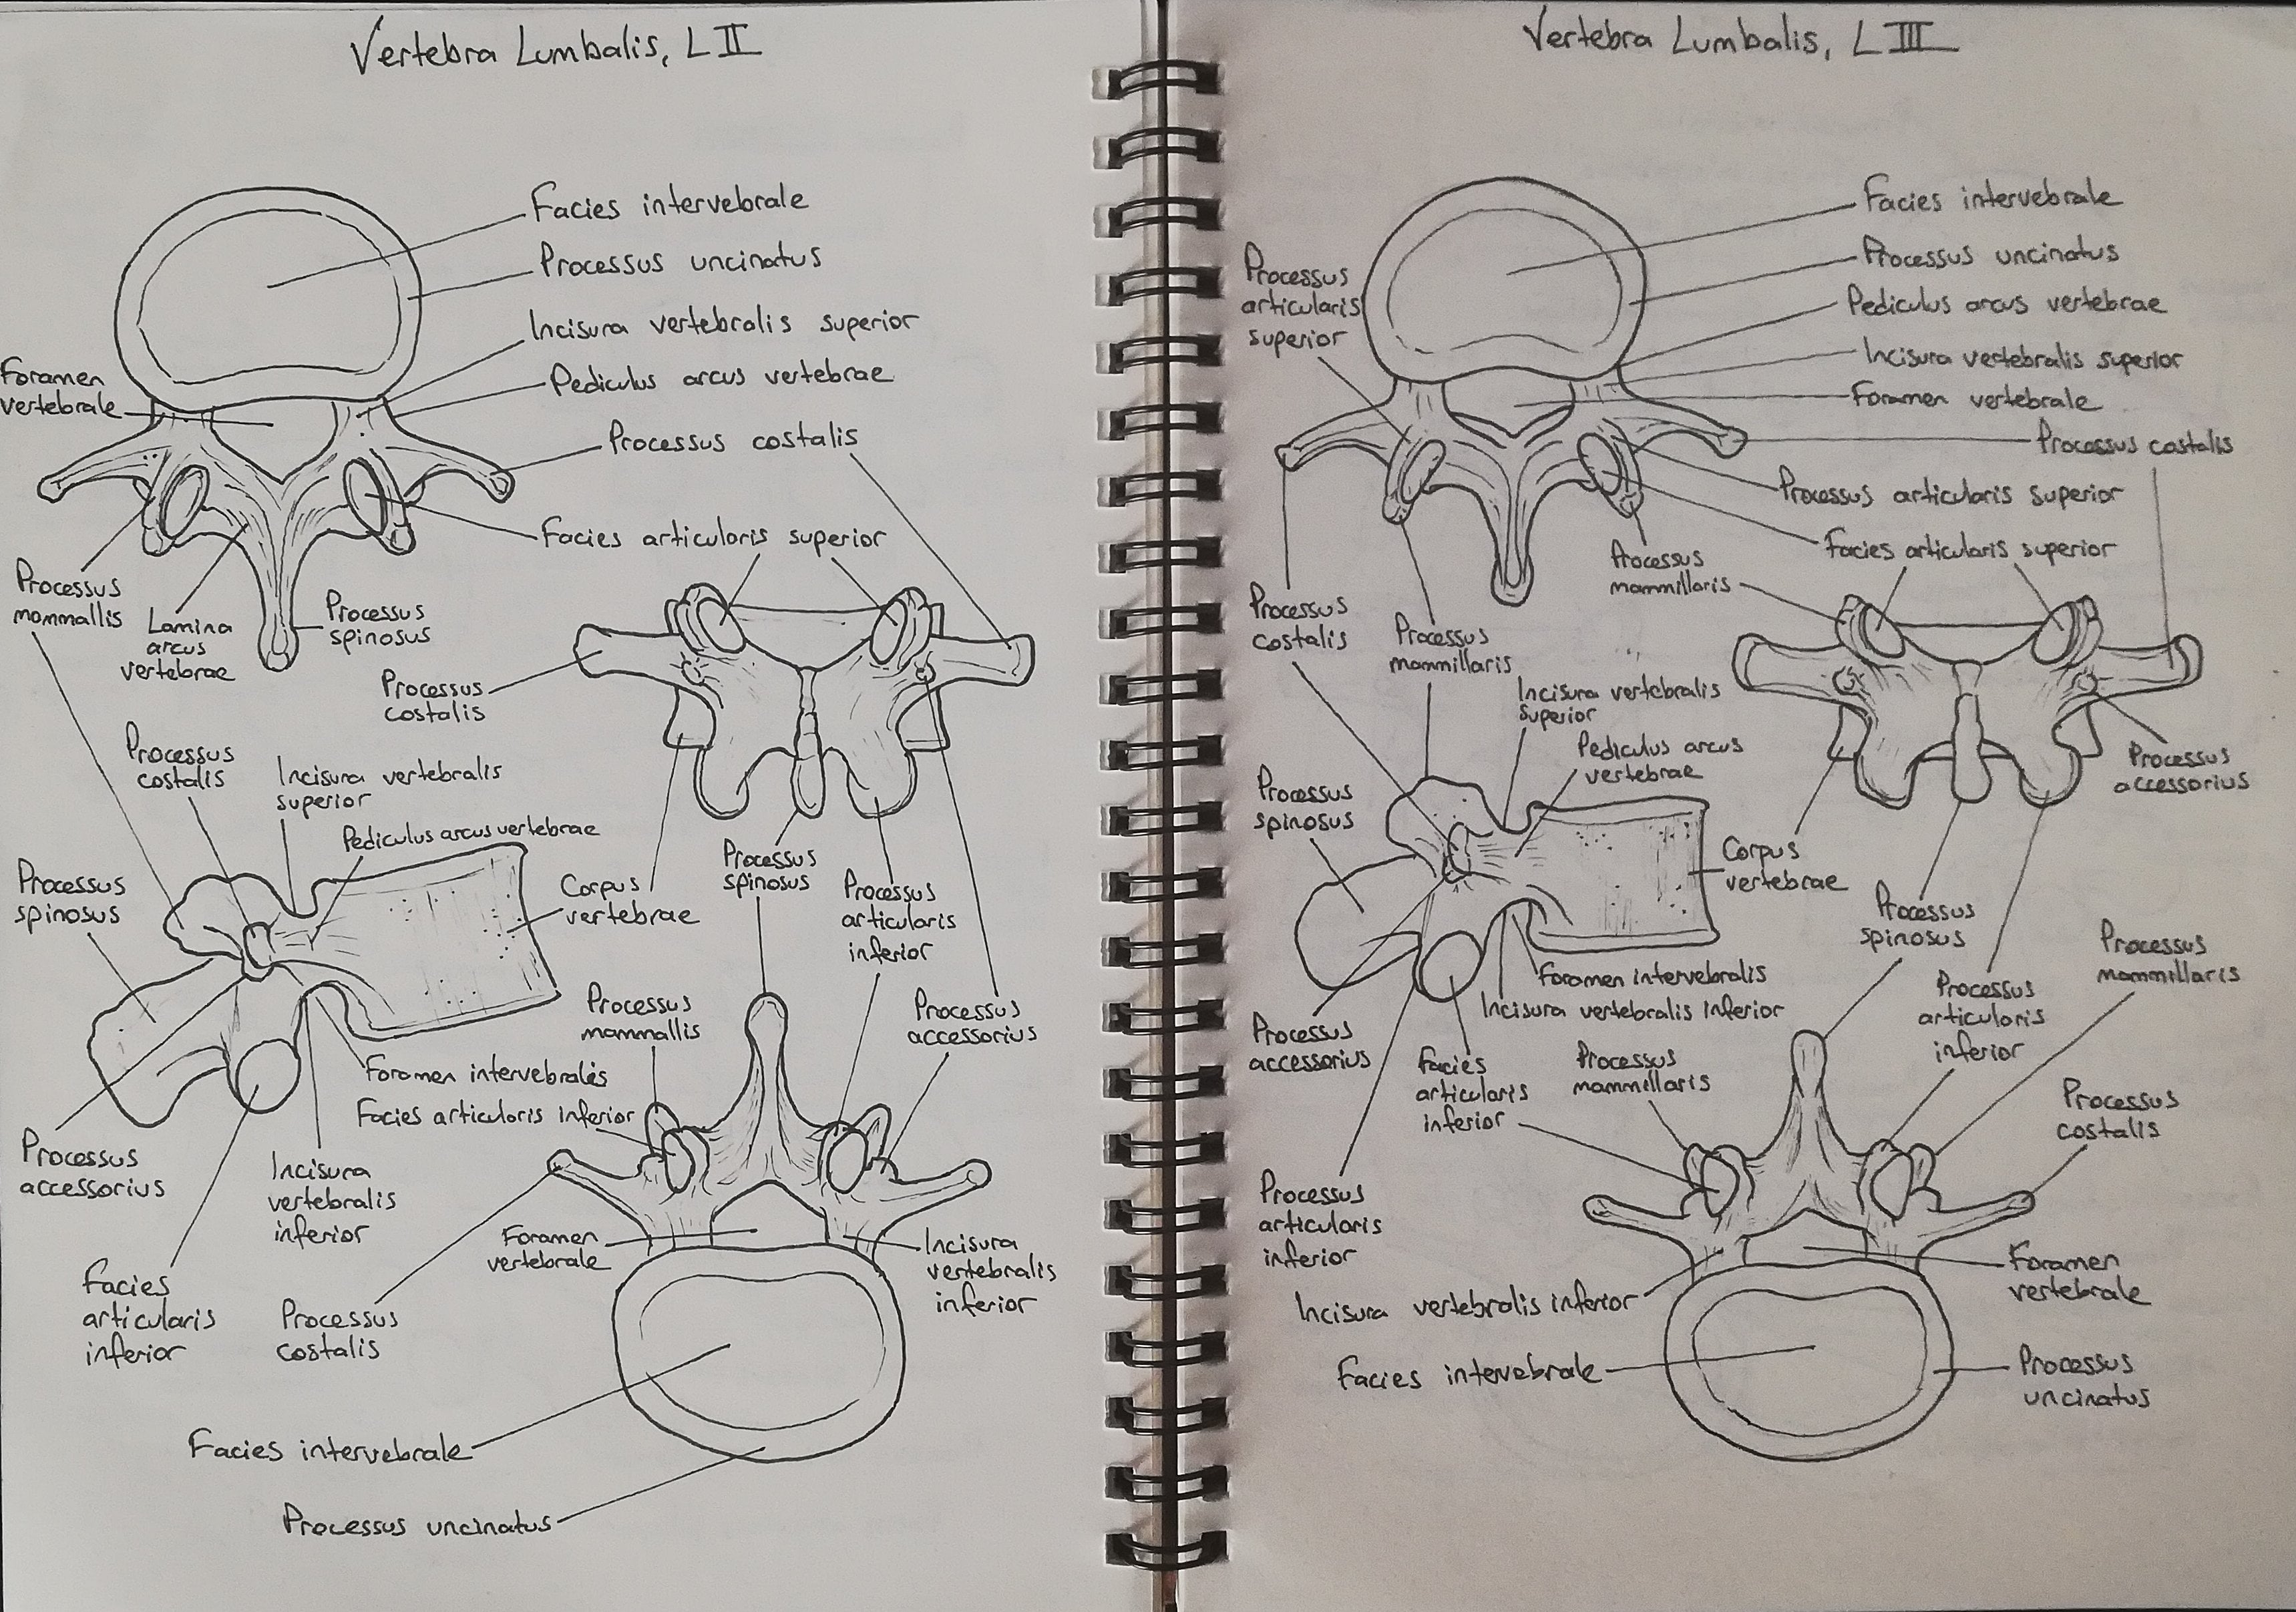 Vertebra Lumbalis, L II
Facies intervebrale
Processus uncinatus
Incisura vertebralis superior
Foramen
vertebrale
Pediculus arcus vertebrae
Processus costalis
Facies articularis superior
Processus
mammallis
Lamina
arcus
vertebrae
Processus
spinosus
Processus
costalis
Processus
costalis
Incisura vertebralis
superior
Pediculus arcus vertebrae
Processus
spinosus
Corpus
vertebrae
Processus
spinosus
Processus
articularis
inferior
Processus
mammallis
Processus
accessorius
Foramen intervebralis
Facies articularis inferior
Processus
accessorius
Incisura
vertebralis
inferior
Foramen
vertebrale
Incisura
vertebralis
inferior
Facies
articularis
inferior
Processus
costalis
Facies intervebrale
Processus uncinatus
Vertebra Lumbalis, L III
Facies intervebrale
Processus uncinatus
Processus
articularis
superior
Pediculus arcus vertebrae
Incisura vertebralis superior
Foramen vertebrale
Processus costalis
Processus articularis superior
Facies articularis superior
Processus
mammillaris
Processus
costalis
Processus
mammillaris
Incisura vertebralis
superior
Pediculus arcus
vertebrae
Processus
accessorius
Processus
spinosus
Corpus
vertebrae
Processus
spinosus
Processus
mammillaris
Foramen intervebralis
Incisura vertebralis inferior
Processus
articularis
inferior
Processus
accessorius
Facies
articularis
inferior
Processus
mammillaris
Processus
costalis
Processus
articularis
inferior
Foramen
vertebrale
Incisura vertebralis inferior
Facies intervebrale
Processus
uncinatus